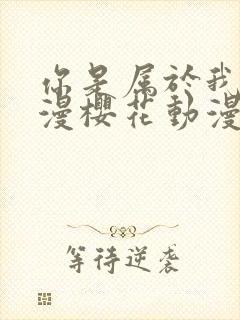 你是属於我
漫櫻花動漫
等待逆袭